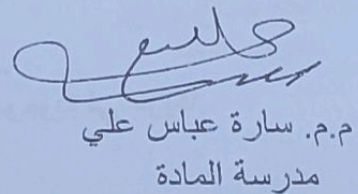 م.م. سارة عباس علي
مدرسة المادة